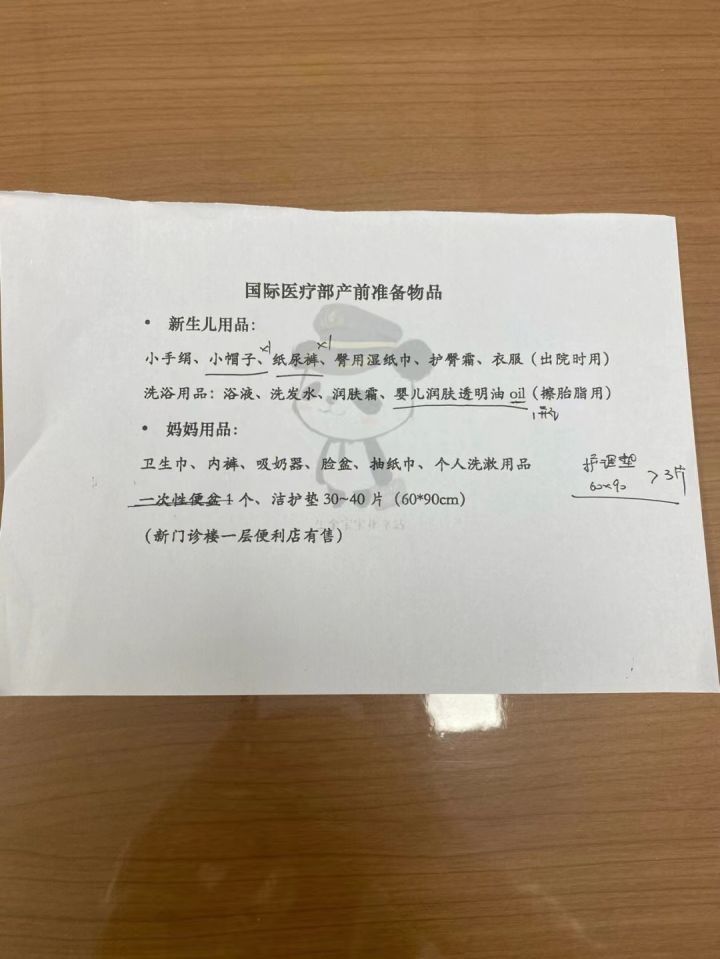 国际医疗部产前准备物品
• 新生儿用品：
x1 x1
小手绢、小帽子、纸尿裤、臀用湿纸巾、护臀霜、衣服（出院时用）
洗浴用品：浴液、洗发水、润肤霜、婴儿润肤透明油 oil（擦胎脂用）
1瓶
• 妈妈用品：
卫生巾、内裤、吸奶器、脸盆、抽纸巾、个人洗漱用品
一次性便盆 1 个、洁护垫 30~40 片（60*90cm）
（新门诊楼一层便利店有售）
护理垫
60x90 >3片